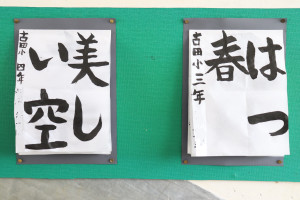 美し
い空
古田小 四年
はつ
春
古田小三年